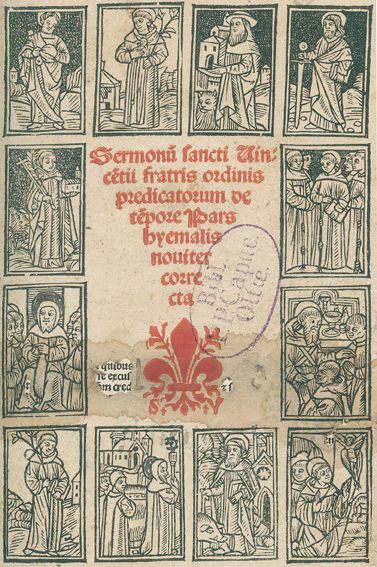 Sermonū sancti Uin-
cētii fratris ordinis
predicatorum de
tēpore Pars
hyemalis
noviter
corre
cta
Bibl.
P. Capuc.
quibus
ē excul
ōm cred